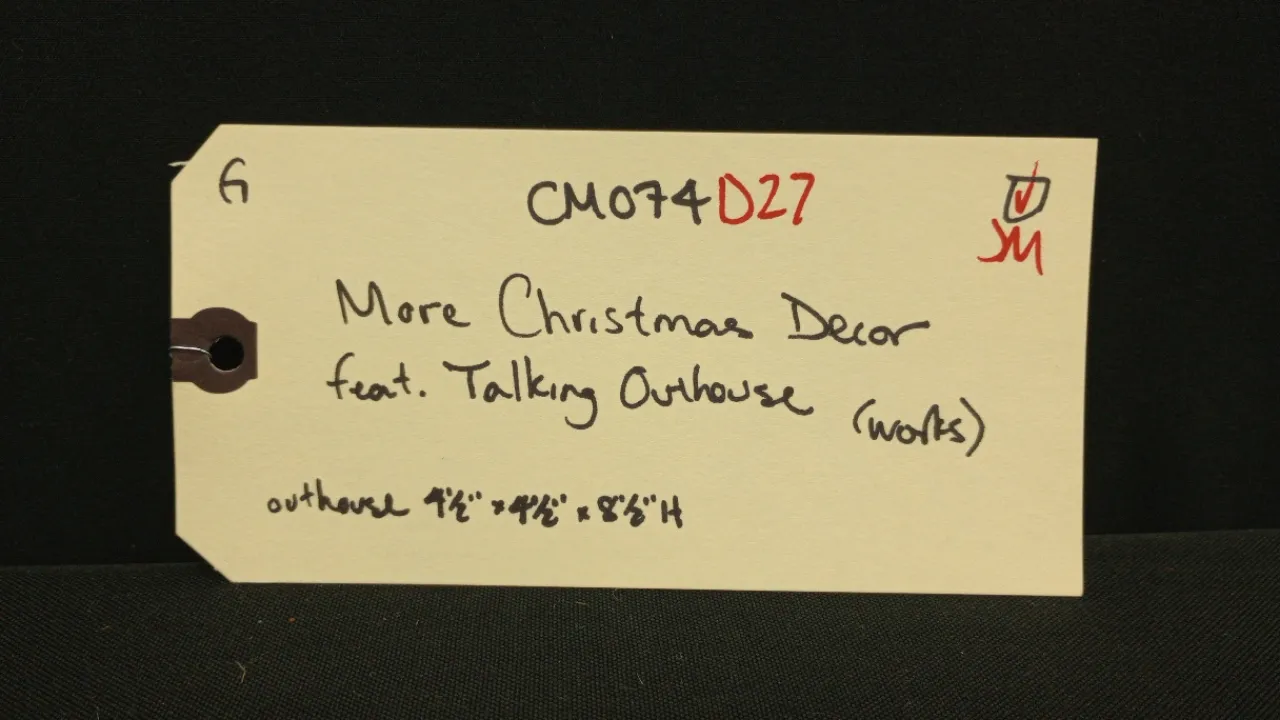 G
CM074D27
JM
More Christmas Decor
feat. Talking Outhouse (works)
outhouse 4½" x 4½" x 8½" H